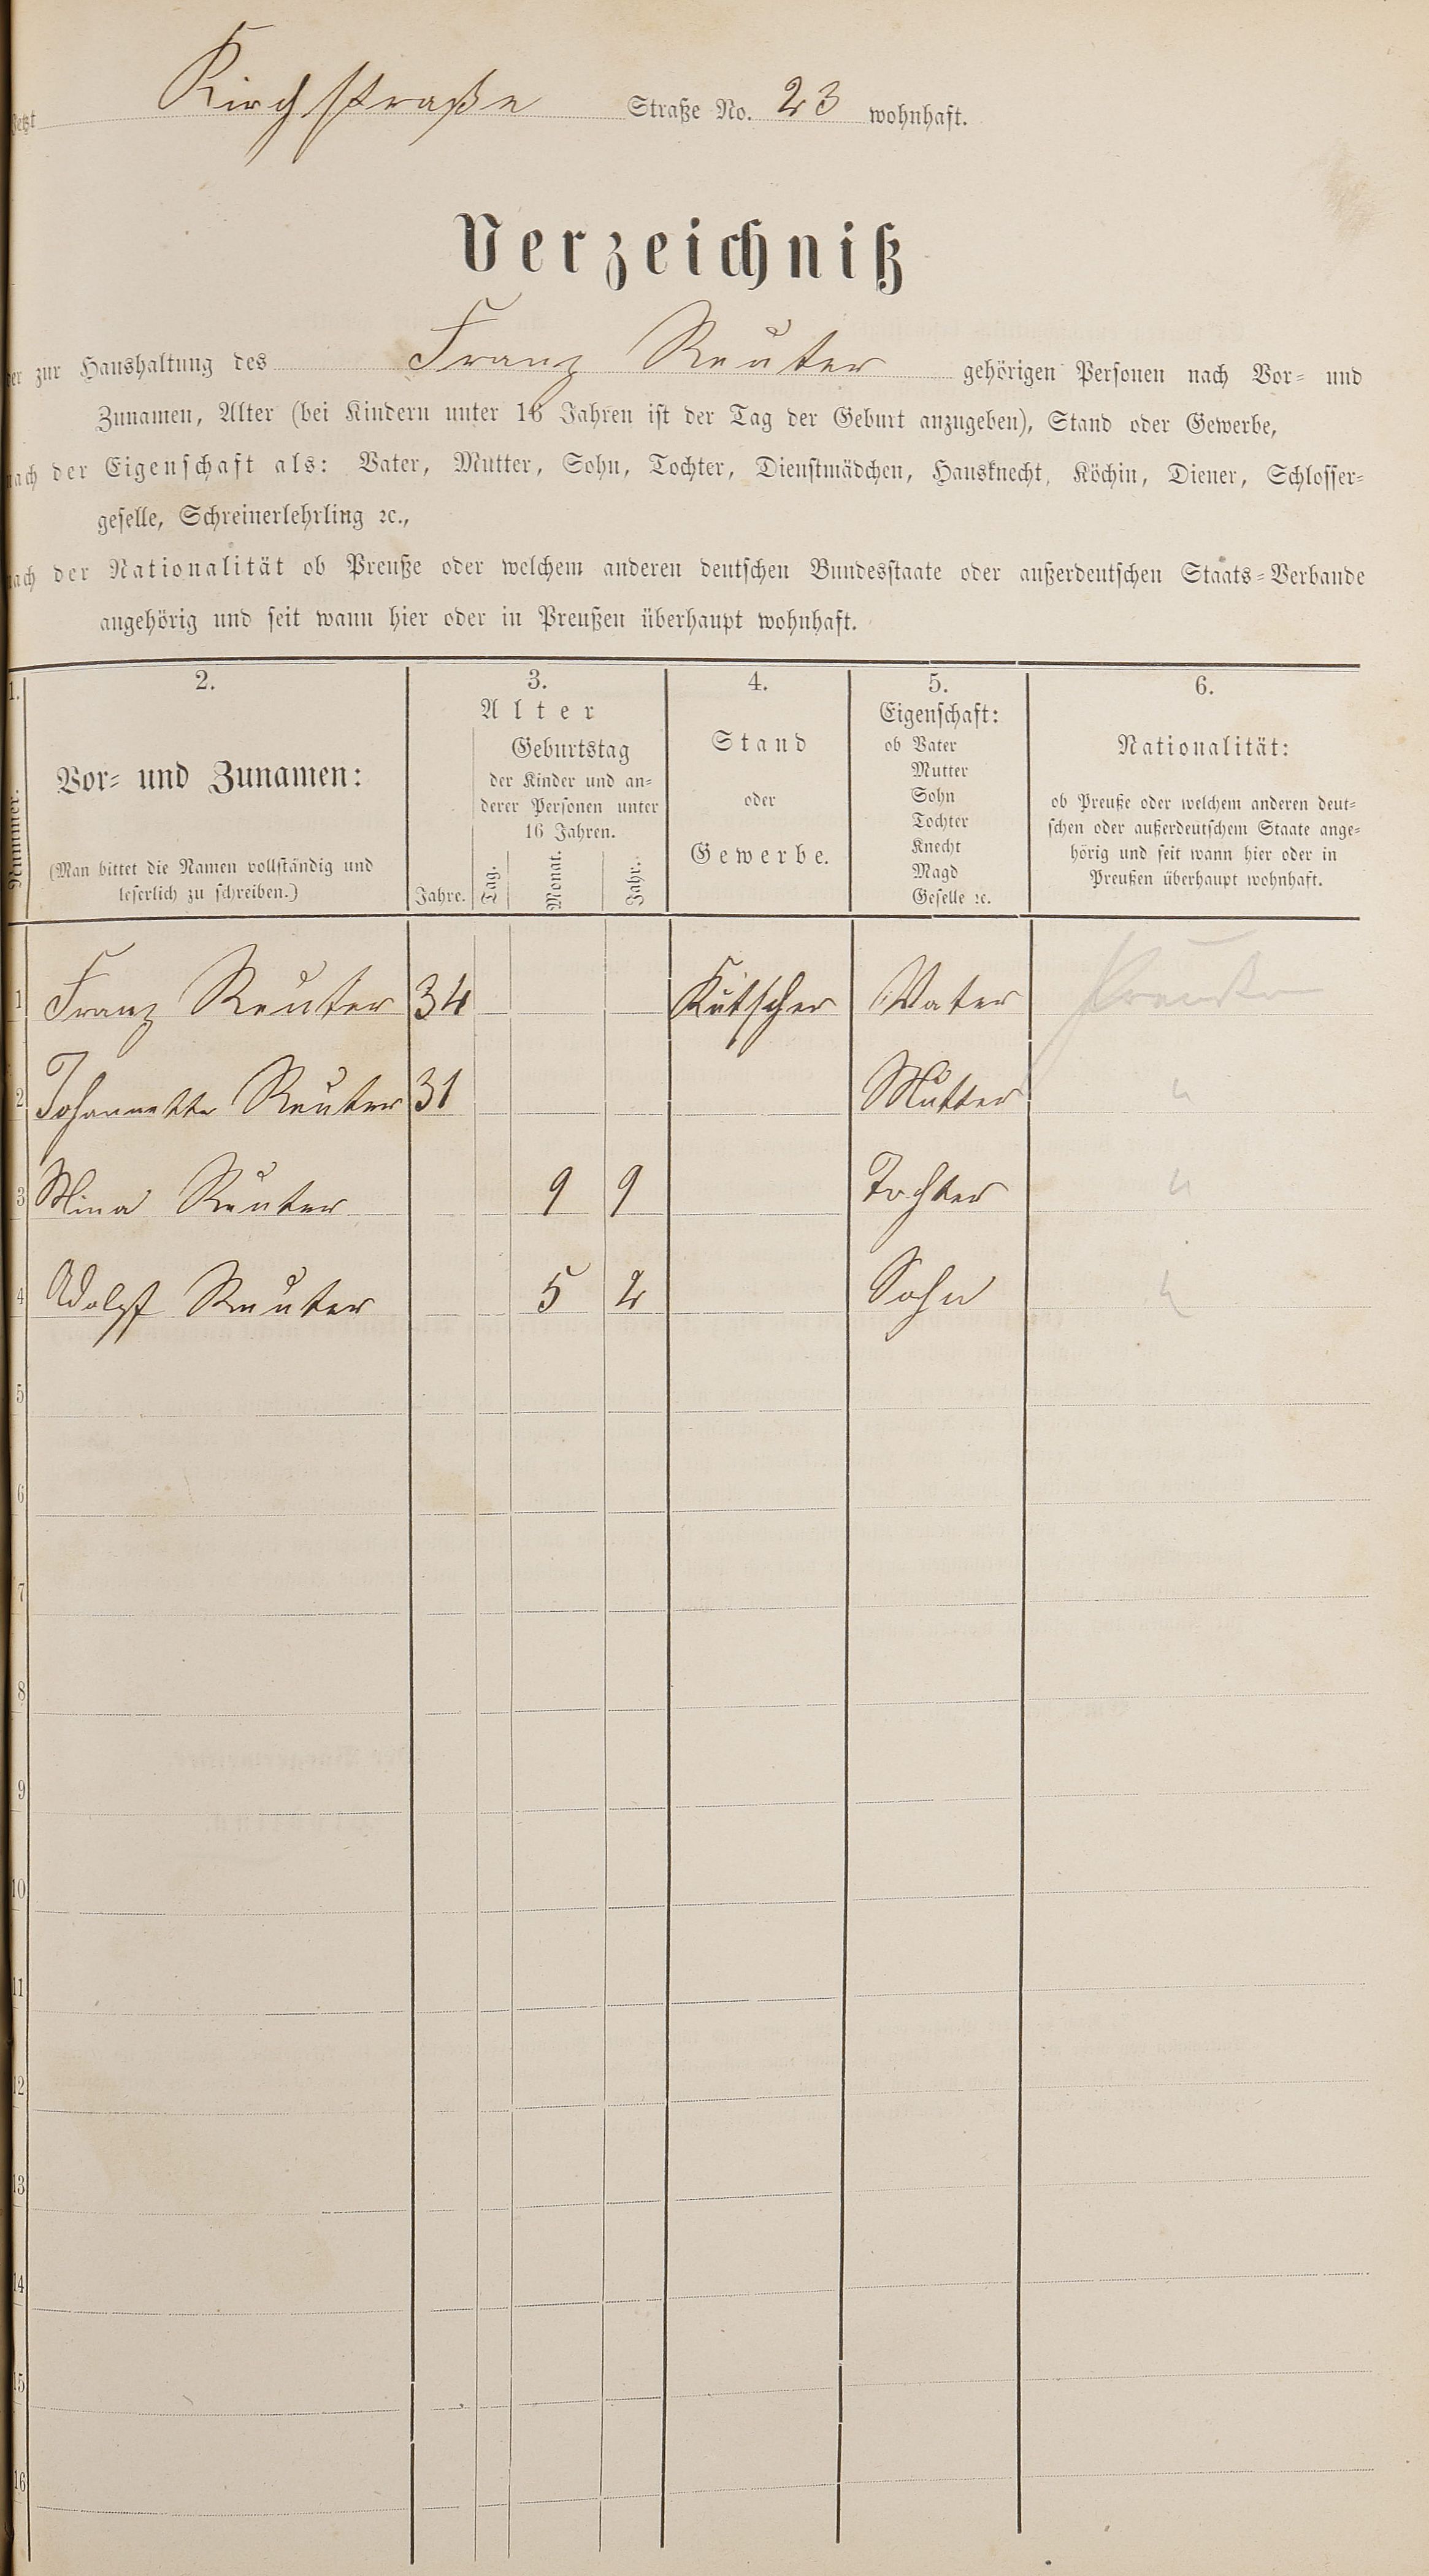 jetzt Kirchstraße Straße No. 23 wohnhaft.
Verzeichniß
der zur Haushaltung des Franz Reuter gehörigen Personen nach Vor- und
Zunamen, Alter (bei Kindern unter 16 Jahren ist der Tag der Geburt anzugeben), Stand oder Gewerbe,
nach der Eigenschaft als: Vater, Mutter, Sohn, Tochter, Dienstmädchen, Hausknecht, Köchin, Diener, Schlosser-
geselle, Schreinerlehrling ꝛc.,
nach der Nationalität ob Preuße oder welchem anderen deutschen Bundesstaate oder außerdeutschen Staats-Verbande
angehörig und seit wann hier oder in Preußen überhaupt wohnhaft.
1. 2. 3. 4. 5. 6.
Nummer.
Vor- und Zunamen:
(Man bittet die Namen vollständig und
leserlich zu schreiben.)
Alter
Jahre.
Geburtstag
der Kinder und an-
derer Personen unter
16 Jahren.
Tag. Monat. Jahr.
Stand
oder
Gewerbe.
Eigenschaft:
ob Vater
Mutter
Sohn
Tochter
Knecht
Magd
Geselle ꝛc.
Nationalität:
ob Preuße oder welchem anderen deut-
schen oder außerdeutschem Staate ange-
hörig und seit wann hier oder in
Preußen überhaupt wohnhaft.
1 Franz Reuter 34 Kutscher Vater Preußen
2 Johannette Reuter 31 Mutter "
3 Mina Reuter 9 9 Tochter "
4 Adolf Reuter 5 2 Sohn "
5
6
7
8
9
10
11
12
13
14
15
16